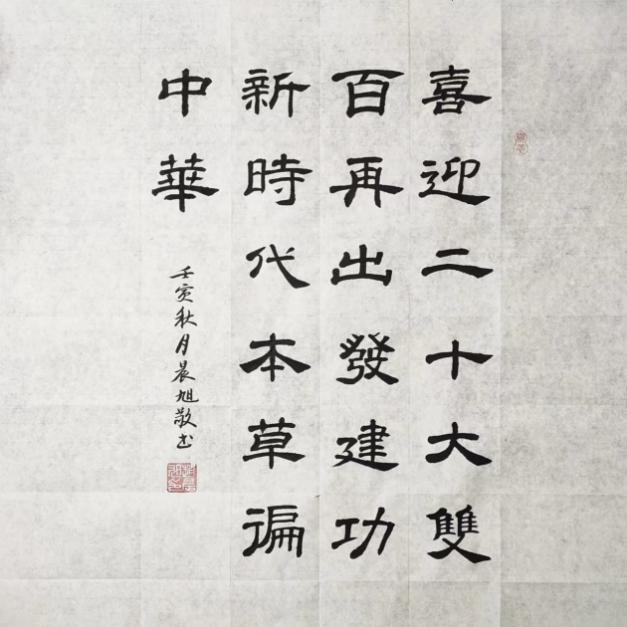 喜迎二十大雙
百再出發建功
新時代本草徧
中華
壬寅秋月晨旭敬书